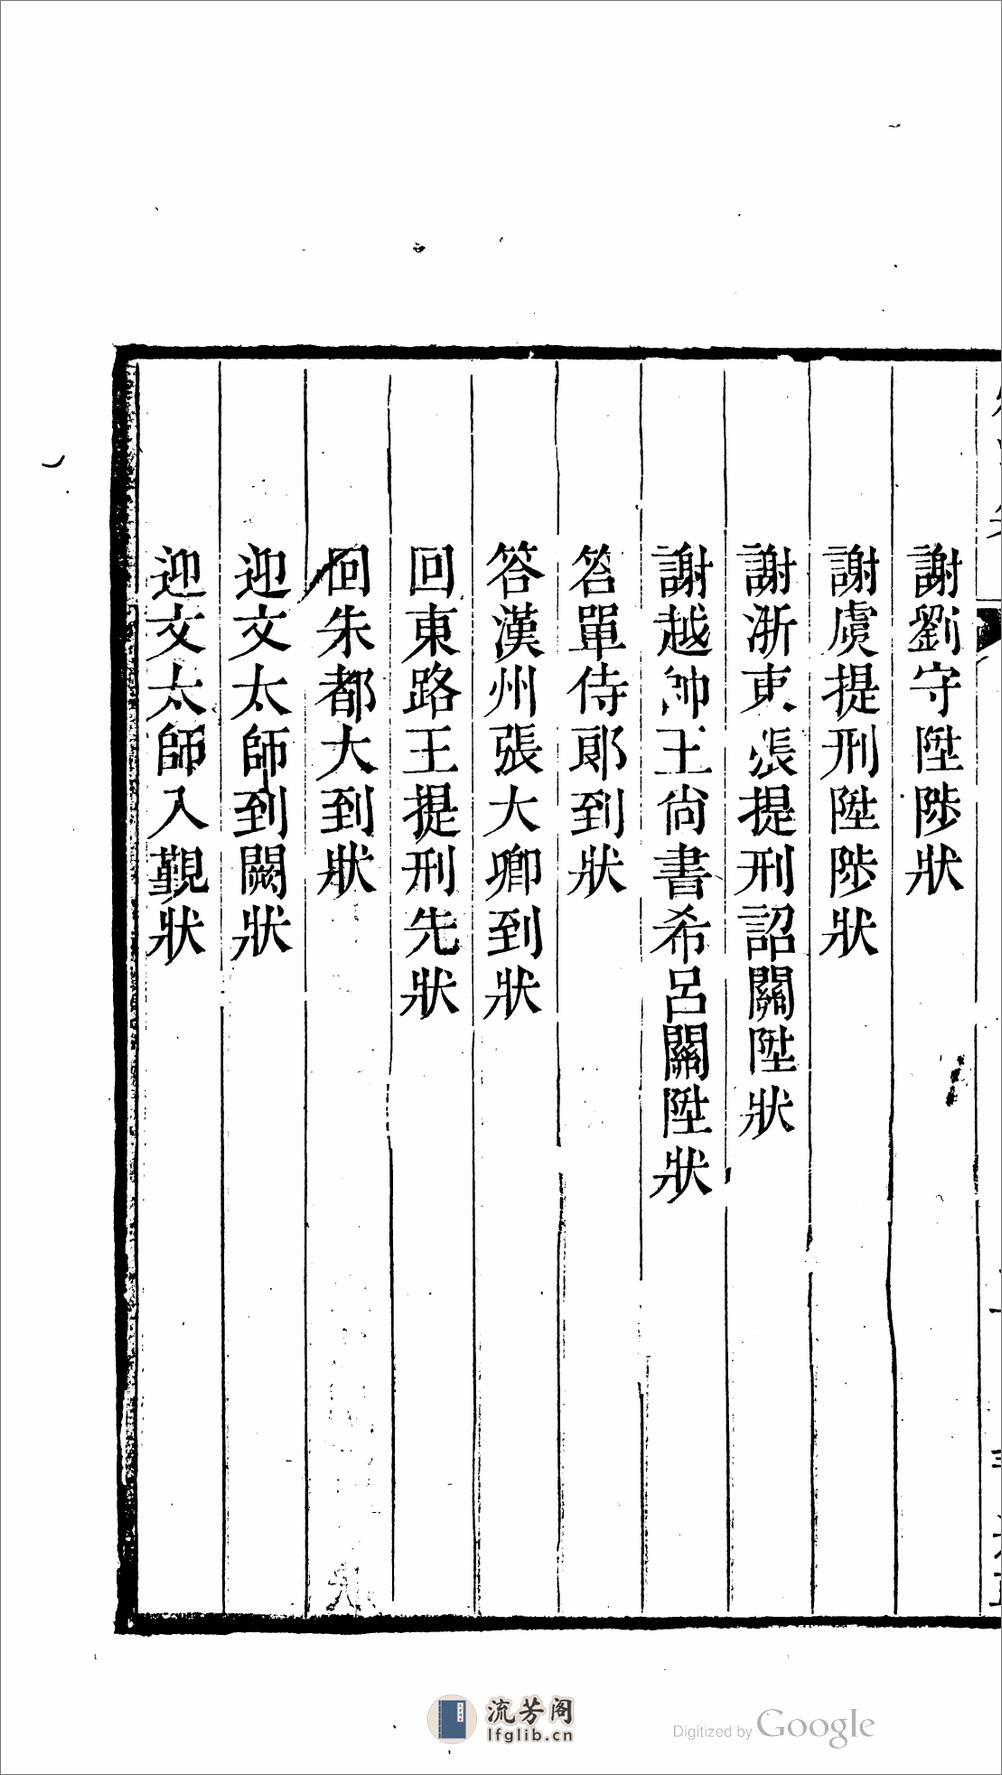 謝劉守陞陟狀
謝虞提刑陞陟狀
謝浙東張提刑詔關陞狀
謝越帥王尚書希呂關陞狀
答單侍郎到狀
答漢州張大卿到狀
回東路王提刑先狀
回朱都大到狀
迎文太師到闕狀
迎文太師入覲狀
流芳阁
lfglib.cn
Digitized by Google